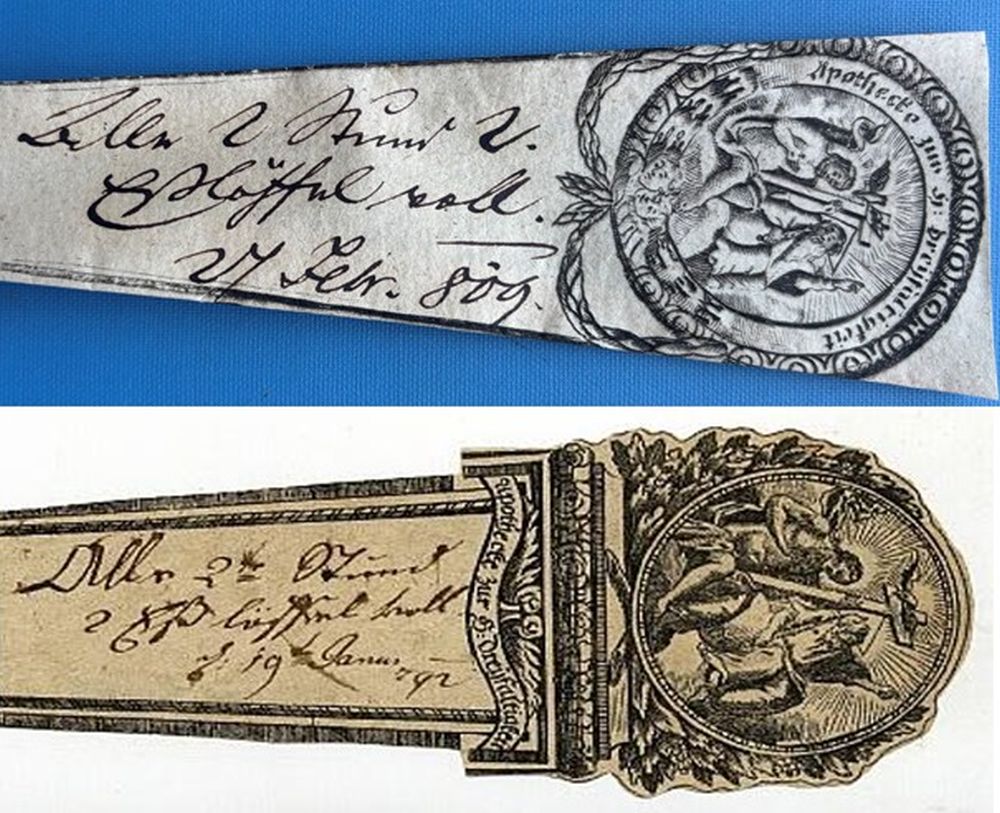 Alle 2 Stund 2.
Eßlöffel voll.
27 Febr. 809.
Apothecke zum H: dreyfaltigkeit
Alle 2te Stund
2 Eß löffel voll
d: 19ten Januar 792
apothecke zur H: Dreifaltigkeit